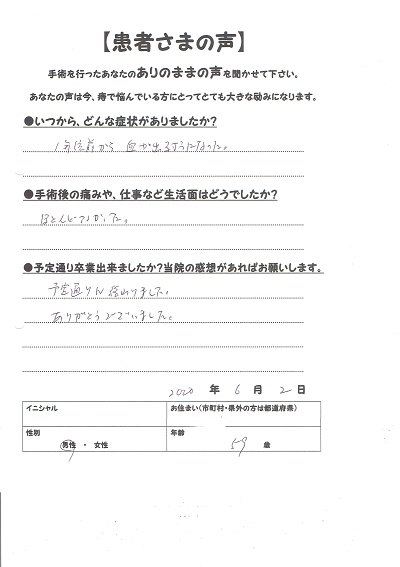 【患者さまの声】
手術を行ったあなたのありのままの声を聞かせて下さい。
あなたの声は今、痔で悩んでいる方にとってとても大きな励みになります。
●いつから、どんな症状がありましたか?
1年位前から 血が出るようになった。
●手術後の痛みや、仕事など生活面はどうでしたか?
ほとんどなかった。
●予定通り卒業出来ましたか?当院の感想があればお願いします。
予定通りに終わりました。
ありがとうございました。
2020 年 6 月 2 日
イニシャル
お住まい(市町村・県外の方は都道府県)
性別
男性 ・ 女性
年齢
59 歳